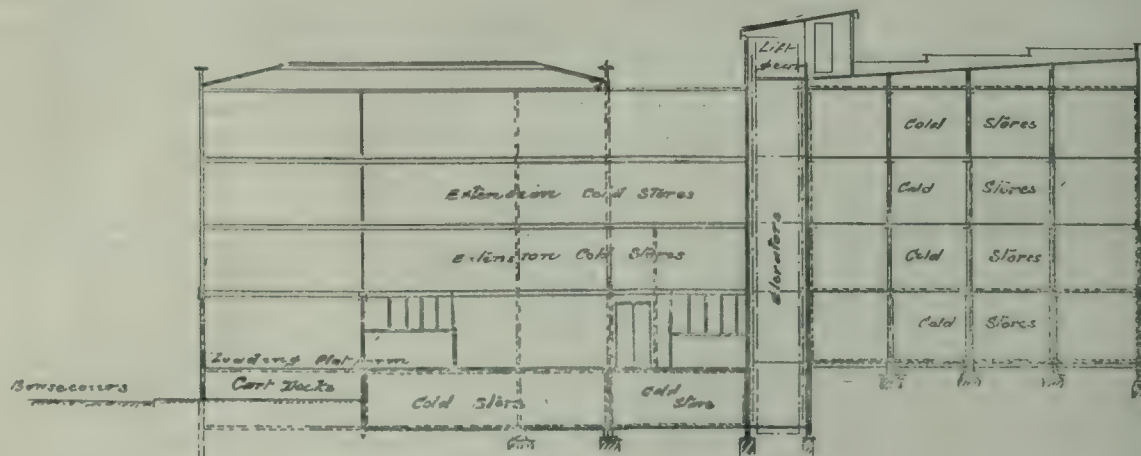 Lift
Cold Stores
Extension Cold Stores
Cold Stores
Extension Cold Stores
Cold Stores
Elevators
Cold Stores
Loading Platform
Bonsecours
Cart Docks
Cold Store
Cold
Store